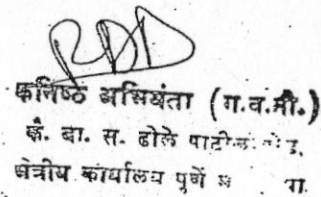 कनिष्ठ अभियंता (ग.व.नी.)
कै. बा. स. ढोले पाटील रोड,
क्षेत्रीय कार्यालय पुणें म